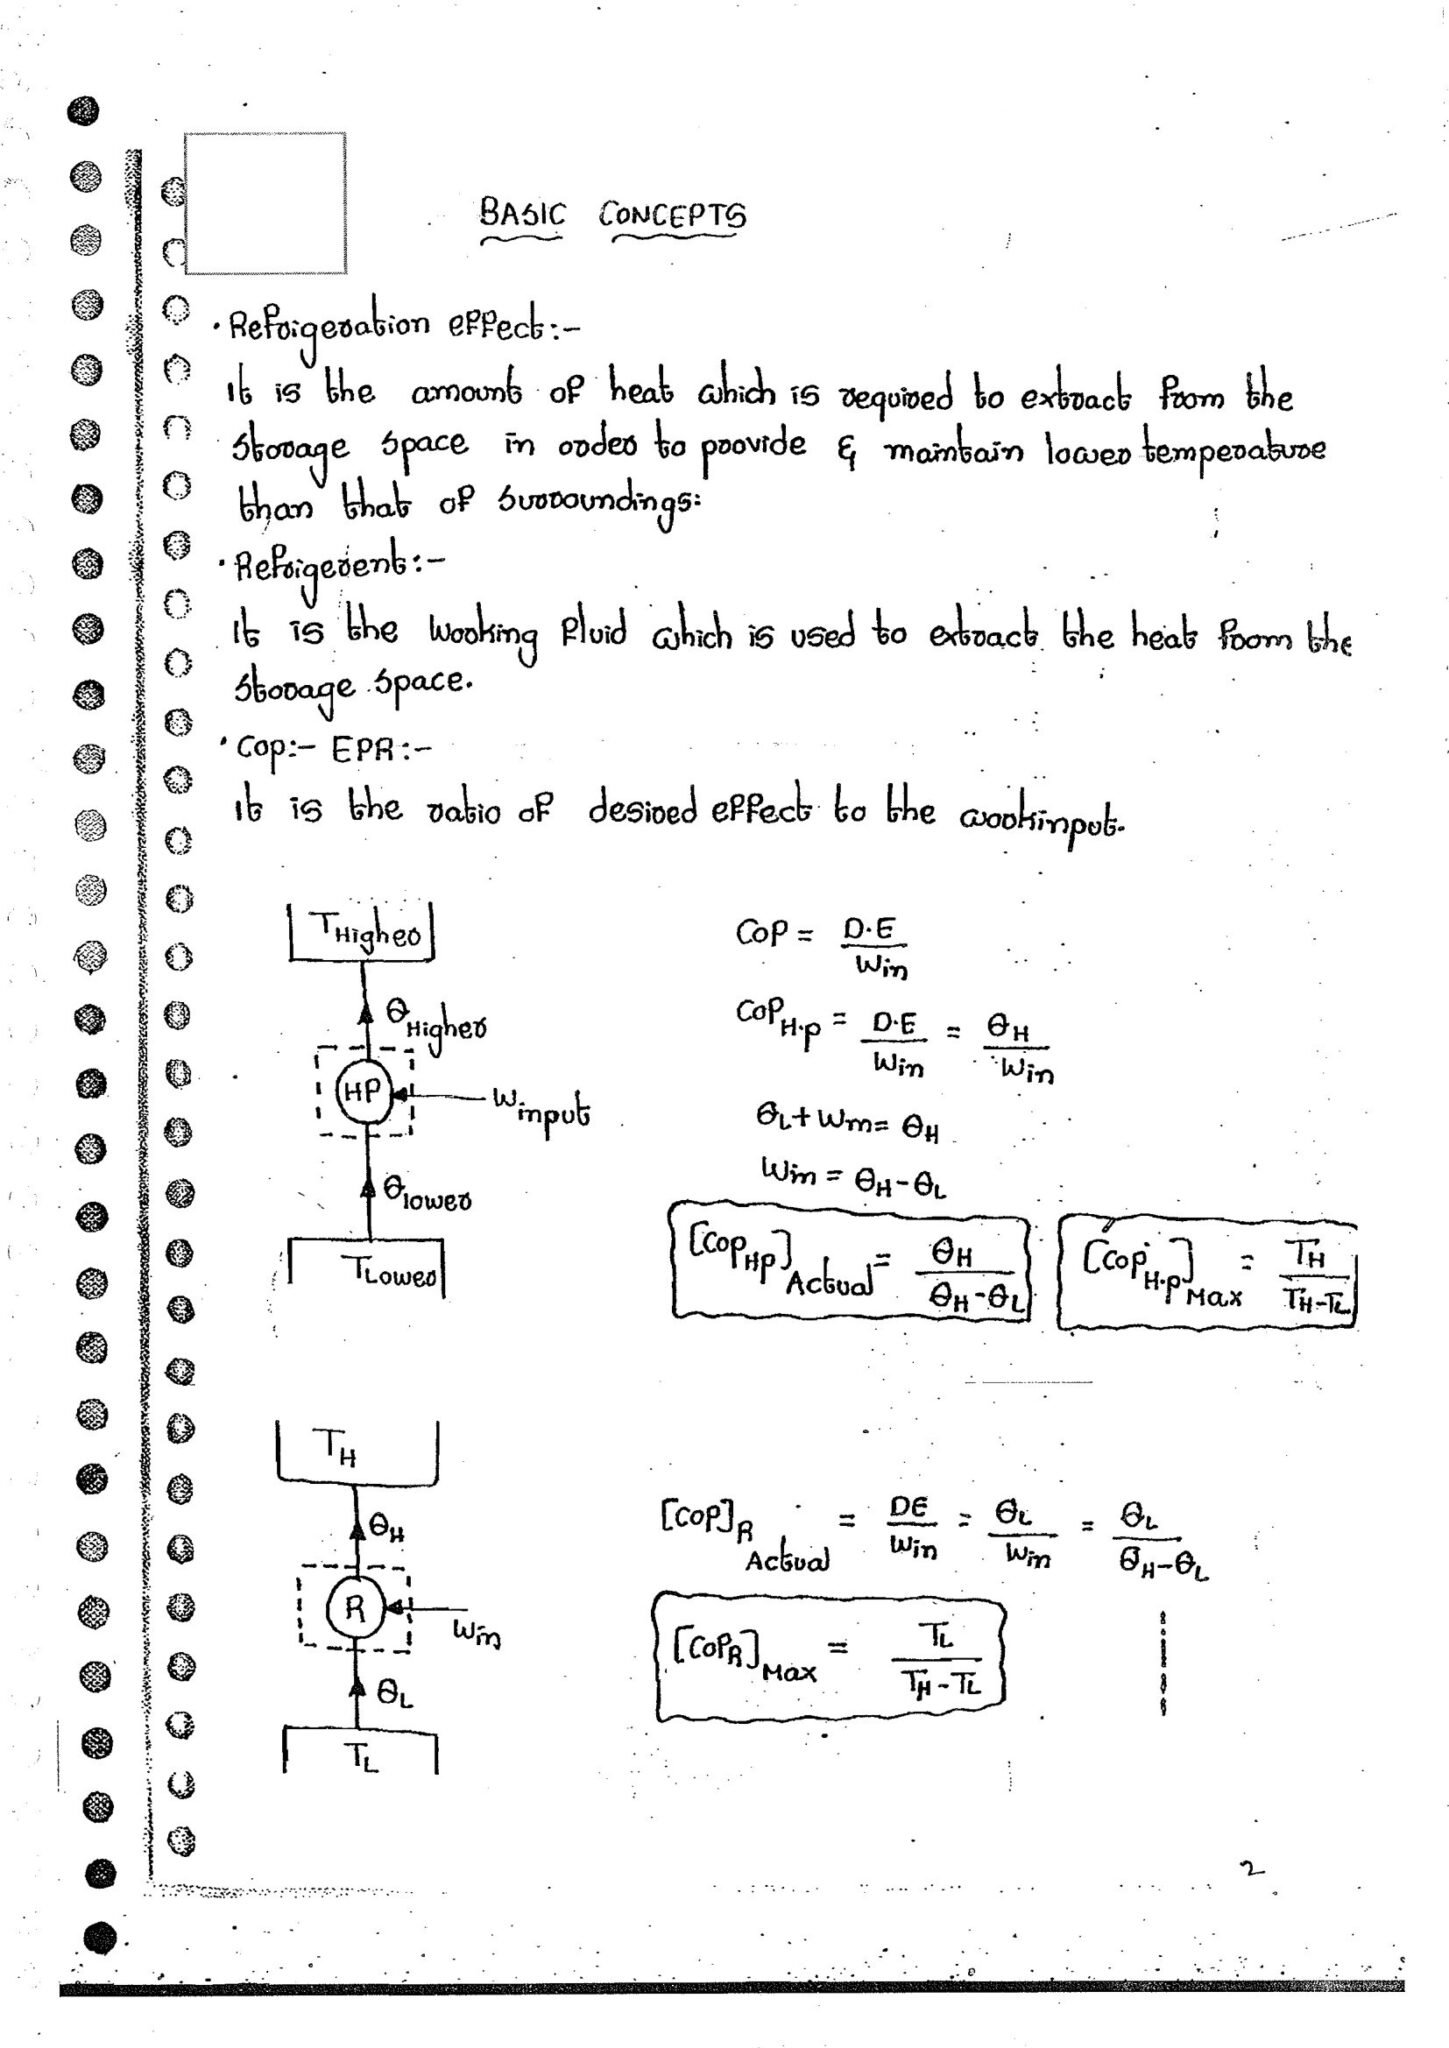 BASIC CONCEPTS
· Refrigeration effect:-
It is the amount of heat which is required to extract from the
storage space in order to provide & maintain lower temperature
than that of surroundings:
· Refrigerent:-
It is the working fluid which is used to extract the heat from the
storage space.
· Cop:- EPR:-
It is the ratio of desired effect to the workinput.
THigher
QHigher
HP
Winput
Qlower
TLower
COP = D.E / Win
COP H.P = D.E / Win = QH / Win
QL + Win = QH
Win = QH - QL
[COP HP] Actual = QH / QH - QL
[COP H.P] Max = TH / TH - TL
TH
QH
R
Win
QL
TL
[COP]R Actual = DE / Win = QL / Win = QL / QH - QL
[COP R] Max = TL / TH - TL
2